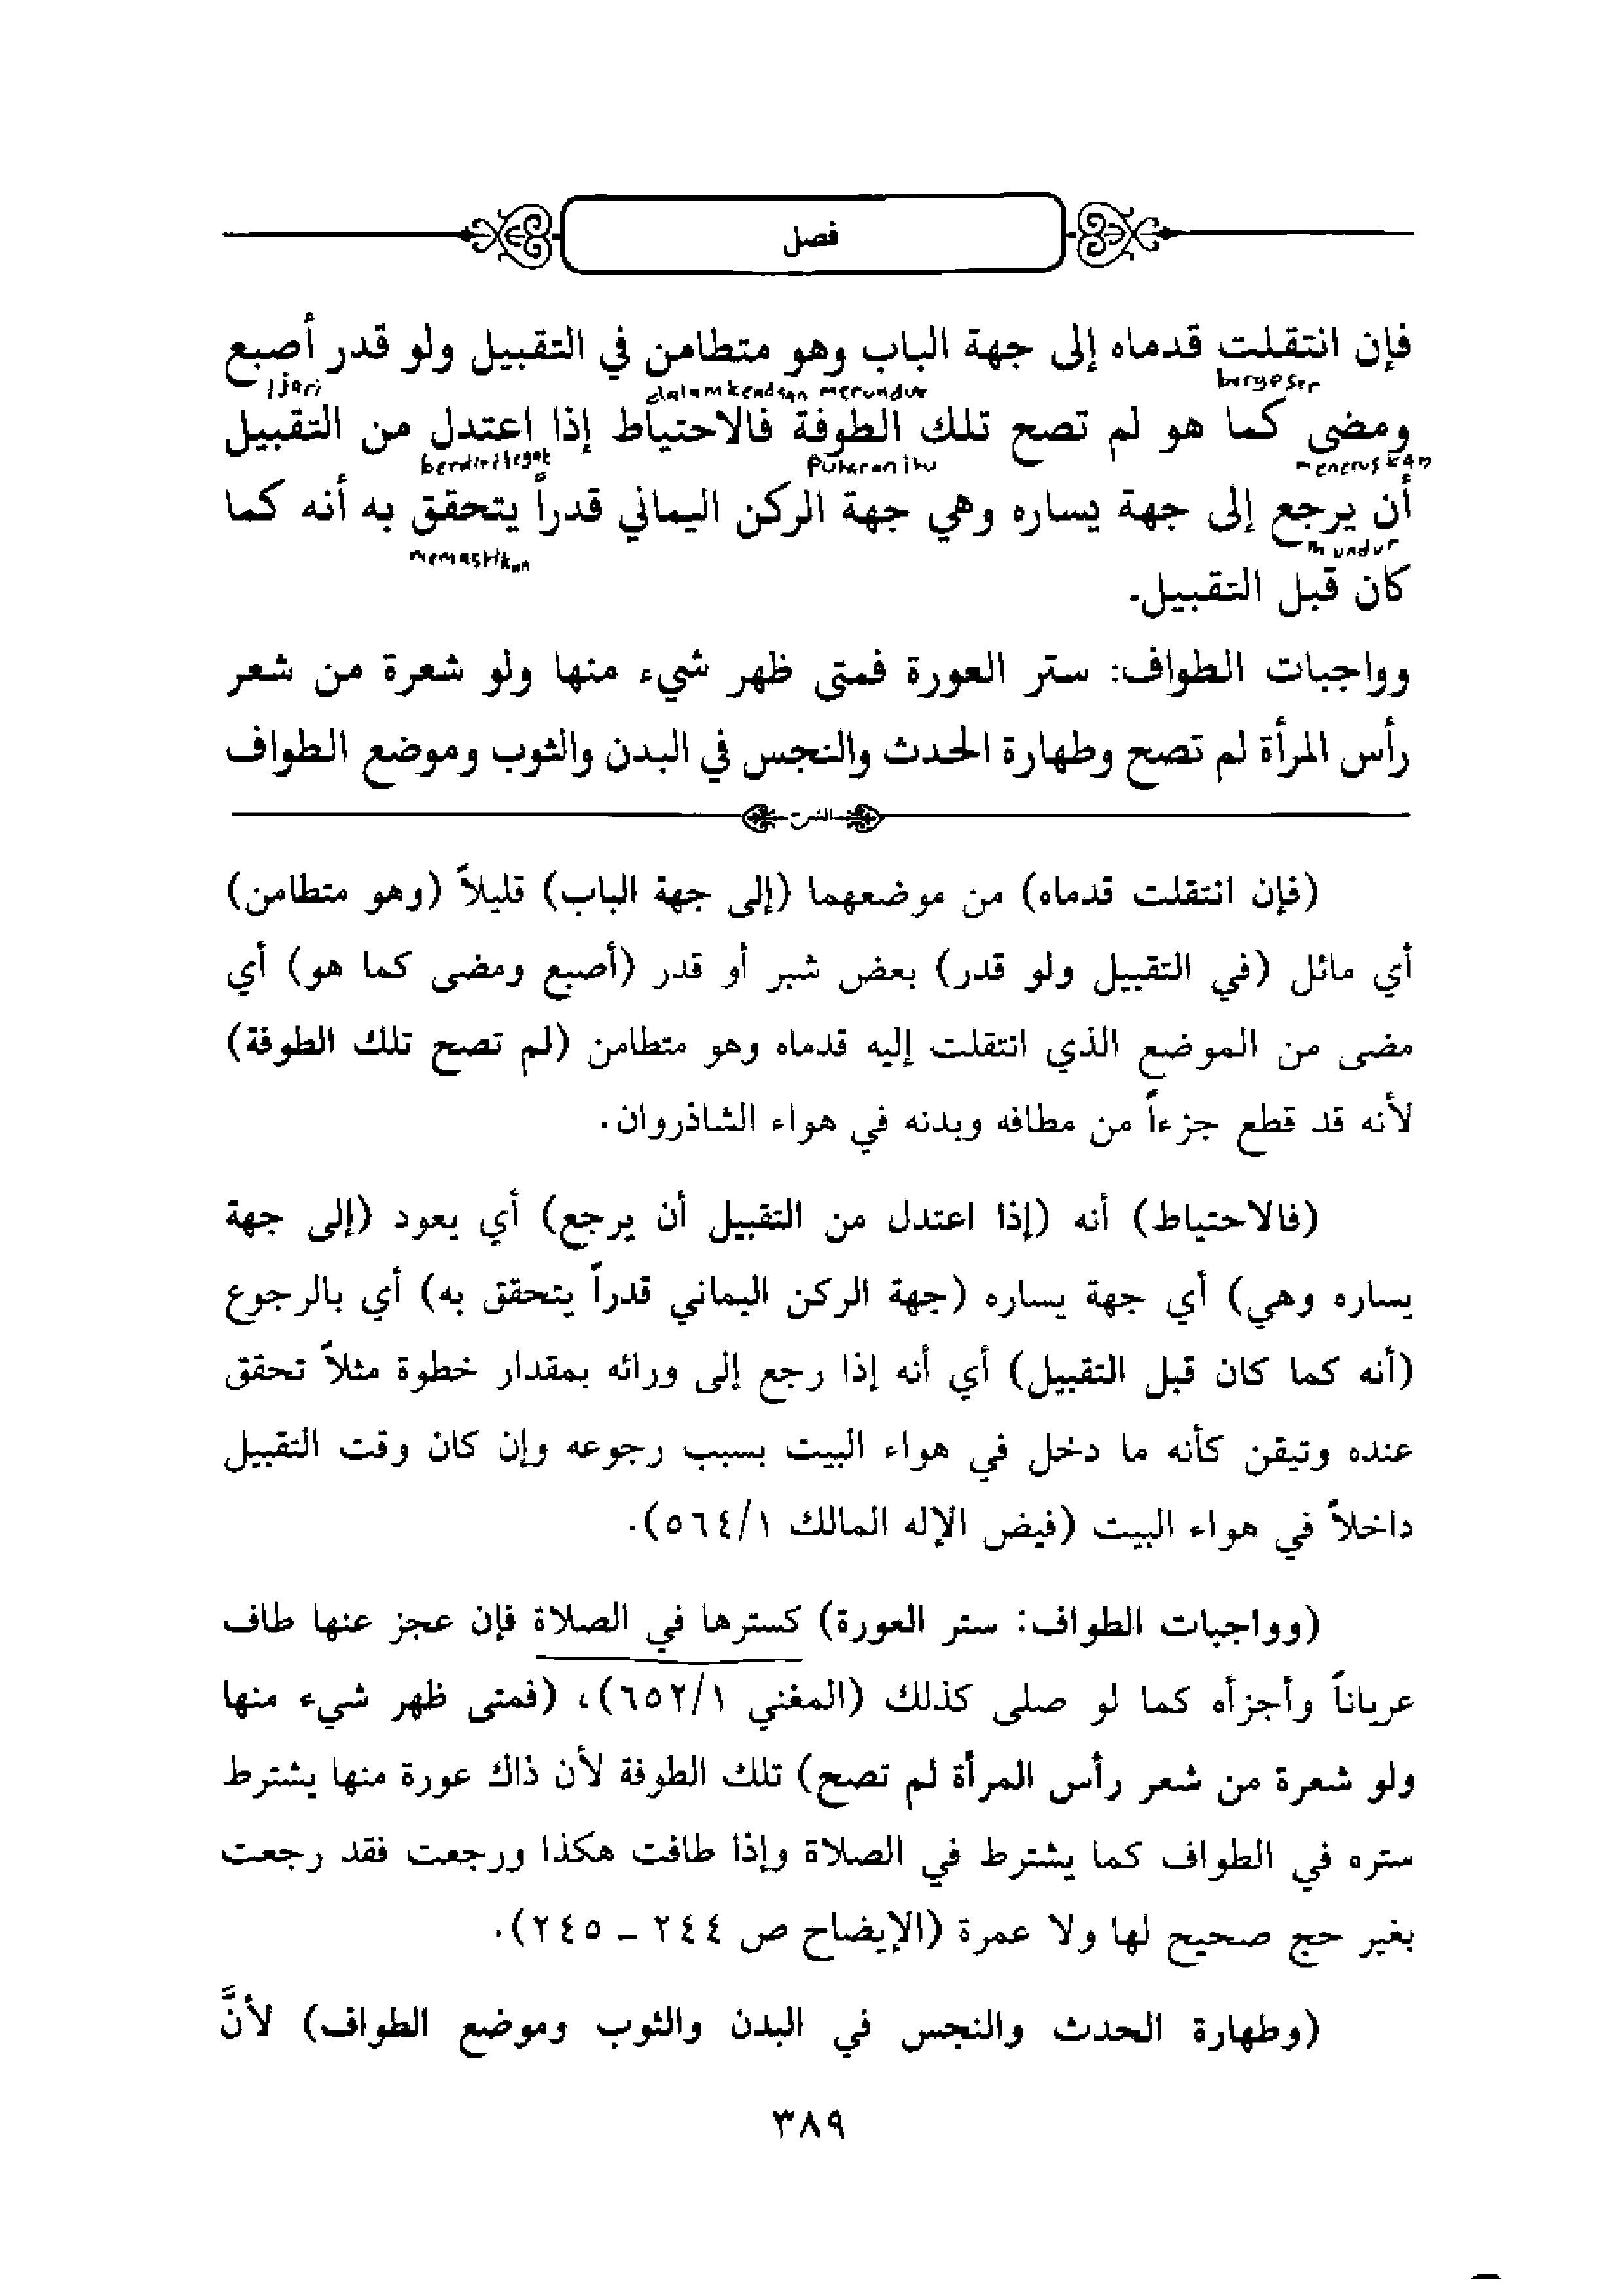 فصل
فإن انتقلت قدماه إلى جهة الباب وهو متطامن في التقبيل ولو قدر أصبع
bergeser dalam keadaan merunduk 1 jari
ومضى كما هو لم تصح تلك الطوفة فالاحتياط إذا اعتدل من التقبيل
meneruskan Putaran itu berdiri tegak
أن يرجع إلى جهة يساره وهي جهة الركن اليماني قدراً يتحقق به أنه كما
mundur memastikan
كان قبل التقبيل.
وواجبات الطواف: ستر العورة فمتى ظهر شيء منها ولو شعرة من شعر
رأس المرأة لم تصح وطهارة الحدث والنجس في البدن والثوب وموضع الطواف
الشرح
(فإن انتقلت قدماه) من موضعهما (إلى جهة الباب) قليلاً (وهو متطامن)
أي مائل (في التقبيل ولو قدر) بعض شبر أو قدر (أصبع ومضى كما هو) أي
مضى من الموضع الذي انتقلت إليه قدماه وهو متطامن (لم تصح تلك الطوفة)
لأنه قد قطع جزءاً من مطافه وبدنه في هواء الشاذروان.
(فالاحتياط) أنه (إذا اعتدل من التقبيل أن يرجع) أي يعود (إلى جهة
يساره وهي) أي جهة يساره (جهة الركن اليماني قدراً يتحقق به) أي بالرجوع
(أنه كما كان قبل التقبيل) أي أنه إذا رجع إلى ورائه بمقدار خطوة مثلاً تحقق
عنده وتيقن كأنه ما دخل في هواء البيت بسبب رجوعه وإن كان وقت التقبيل
داخلاً في هواء البيت (فيض الإله المالك ٥٦٤/١).
(وواجبات الطواف: ستر العورة) كسترها في الصلاة فإن عجز عنها طاف
عرياناً وأجزأه كما لو صلى كذلك (المغني ٦٥٢/١)، (فمتى ظهر شيء منها
ولو شعرة من شعر رأس المرأة لم تصح) تلك الطوفة لأن ذاك عورة منها يشترط
ستره في الطواف كما يشترط في الصلاة وإذا طافت هكذا ورجعت فقد رجعت
بغير حج صحيح لها ولا عمرة (الإيضاح ص ٢٤٤ - ٢٤٥).
(وطهارة الحدث والنجس في البدن والثوب وموضع الطواف) لأنَّ
٣٨٩